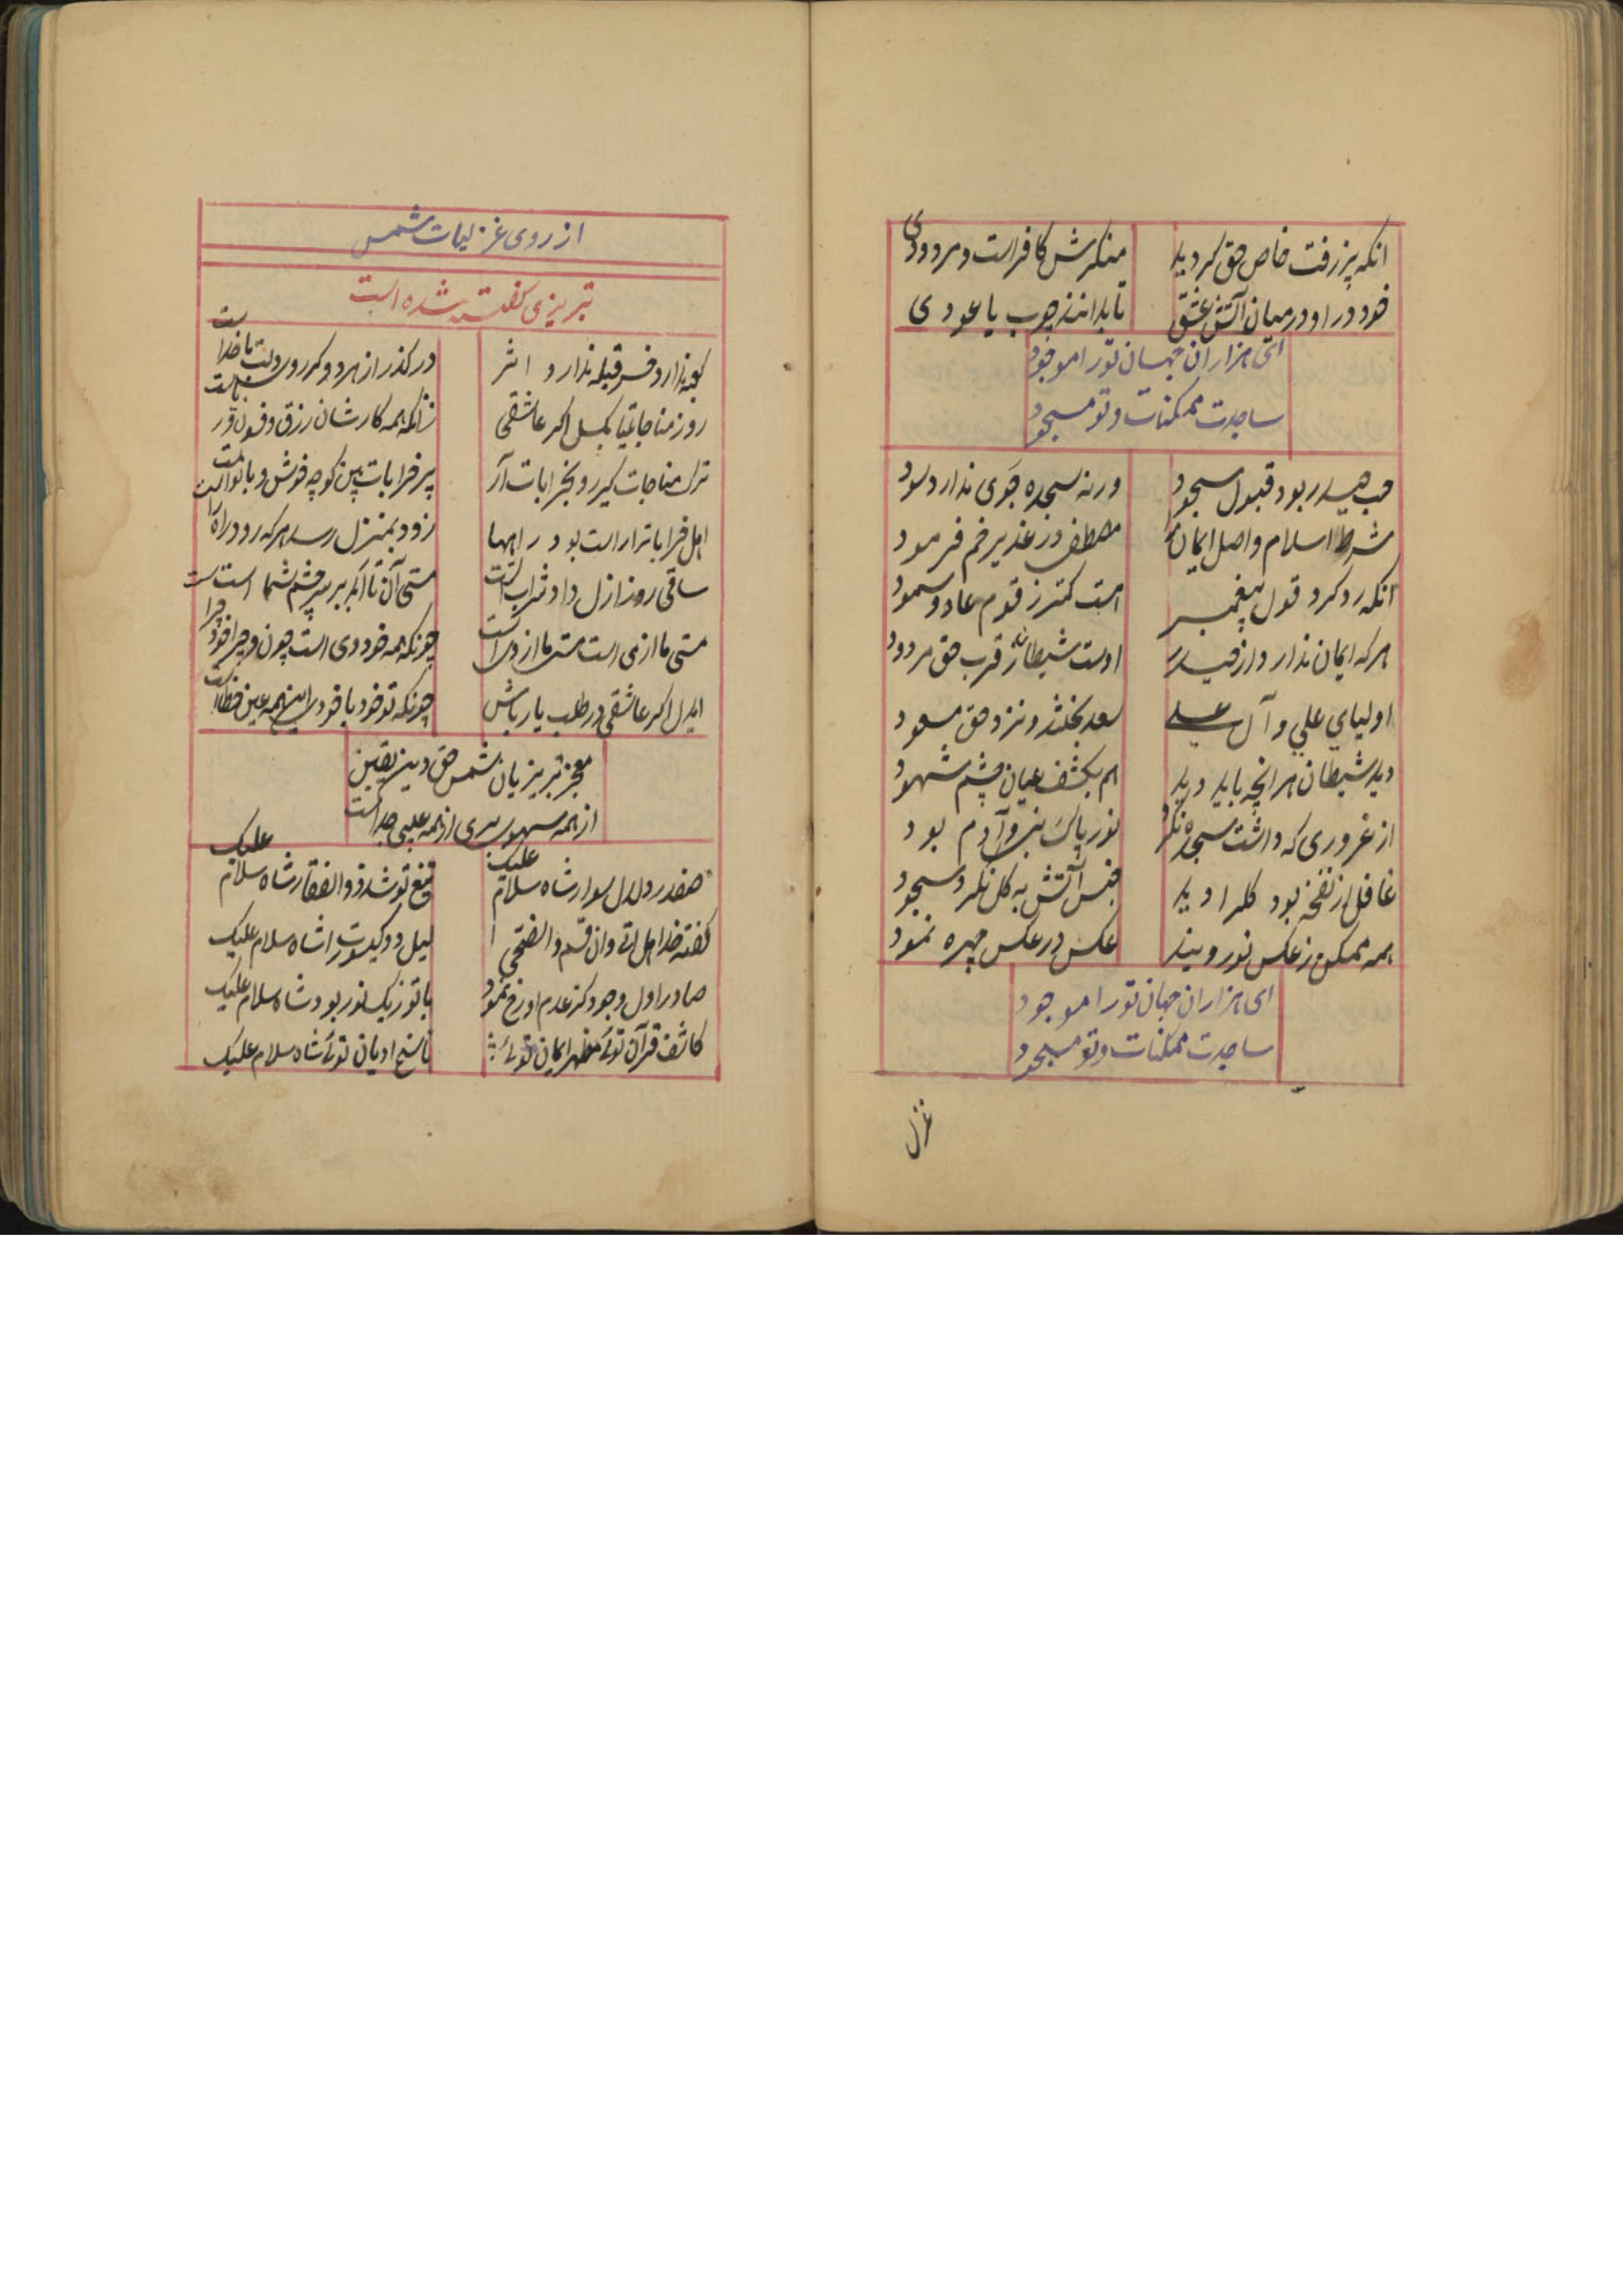 انکه پزرفت خاص حق کردید
منکرش کافر است و مردودی
خود در او در میان آتش عشق
تا بدانند چوب یا عودی
ای هزاران جهان تو را موجود
ساجدت ممکنات و تو مسجود
حب حیدر بود قبول سجود
ورنه سجده جوی ندارد سود
شرط اسلام و اصل ایمان
مصطفی در غدیر خم فرمود
انکه رد کرد قول پیغمبر
است کمتر ز قوم عاد و ثمود
هرکه ایمان ندارد از حیدر
اوست شیطان ز قرب حق مردود
اولیای علی و آل علی
سعد بختند و نزد حق مسعود
دید شیطان هرانچه باید دید
هم بکشف عیان چشم شهود
از غروری که داشت سجده نکرد
نور پاک نبی و آدم بود
غافل از نفخه بود کل را دید
جنس آتش به کل نکرد سجود
همه ممکن ز عکس نور ویند
عکس در عکس چهره نمود
ای هزاران جهان تو را موجود
ساجدت ممکنات و تو مسجود
غزل
از روی غزلیات شمس
تبریزی کفته شده است
کعبه ندارد قبله ندارد اثر
در کذر از هر دو کر رو دلت با خداست
روز مناجاتیا بکسل اکر عاشقی
زانکه همه کارشان رزق و فسون
ترک مناجات کیر رو بخرابات آر
پیر خرابات بین کوچه خوش و با نواست
اهل خرابات را راست بود راهها
زود بمنزل رسد هرکه رود راه راست
ساقی روز ازل داد شراب الست
مستی آن تا ابد بر سر چشم شما است
مستی ما از می است مستی ما از وی است
چونکه همه خود وی است چون و چرا خود چرا
ایدل اکر عاشقی در طلب یار باش
چونکه تو خود با خودی اینهمه عین خطاست
معجز تبریزیان شمس حق و دین یقین
از همه سهوی بری از همه عیبی جداست
صفدر دلدل سوار شاه سلام علیک
تیغ تو شد ذوالفقار شاه سلام علیک
کفته خدا هل اتی وان قسم والضحی
لیل دو کیسوت را شاه سلام علیک
صادر اول وجود کز عدم او رخ نمود
با تو ز یک نور بود شاه سلام علیک
کاشف قرآن توئی مظهر ایمان توئی
ناسخ ادیان توئی شاه سلام علیک